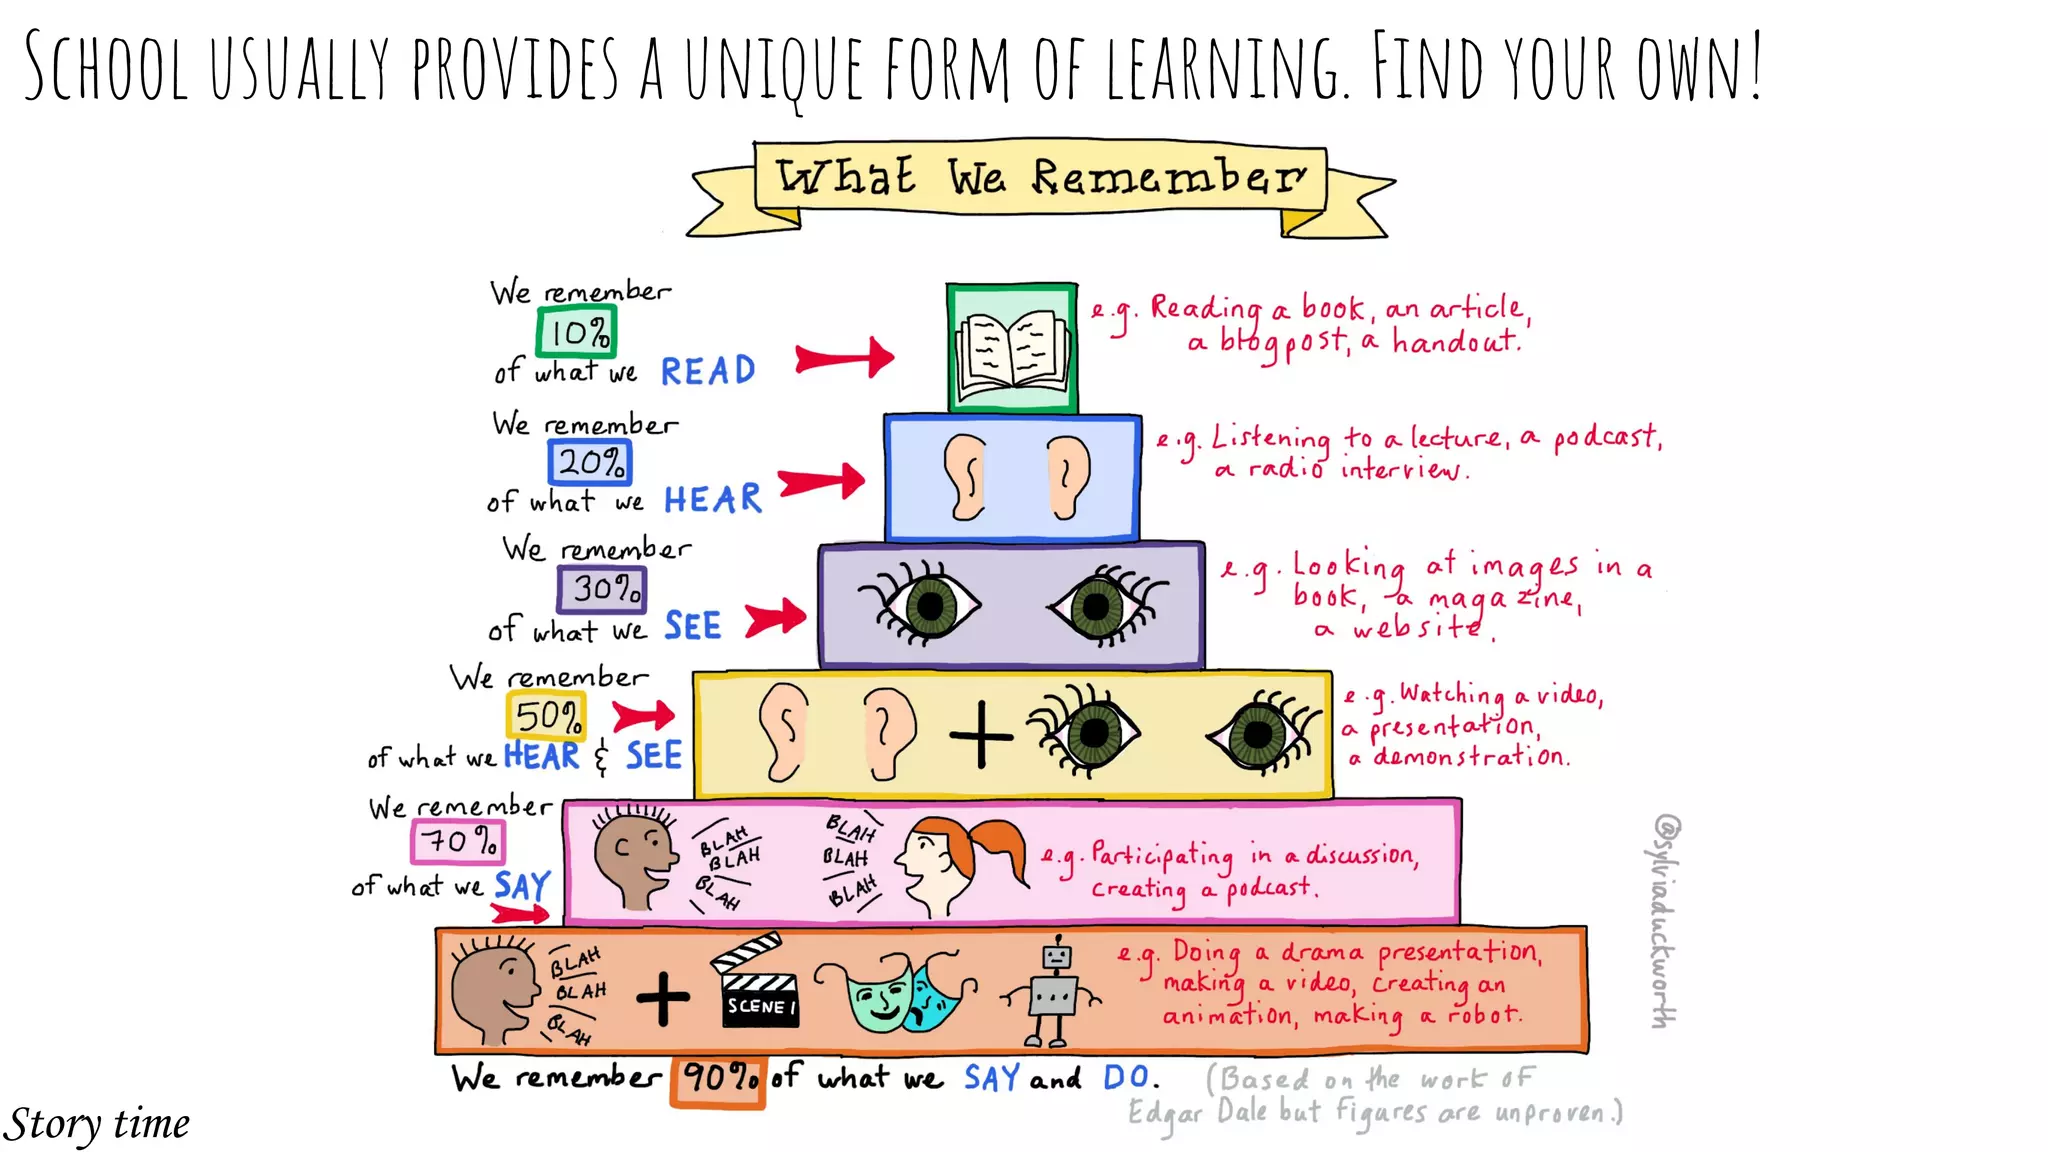 School usually provides a unique form of learning. Find your own!
What We Remember
We remember
10%
of what we READ
e.g. Reading a book, an article,
a blogpost, a handout.
We remember
20%
of what we HEAR
e.g. Listening to a lecture, a podcast,
a radio interview.
We remember
30%
of what we SEE
e.g. Looking at images in a
book, a magazine,
a website.
We remember
50%
of what we HEAR & SEE
e.g. Watching a video,
a presentation,
a demonstration.
We remember
70%
of what we SAY
BLAH
BLAH
BLAH
BLAH
BLAH
BLAH
e.g. Participating in a discussion,
creating a podcast.
BLAH
BLAH
BLAH
SCENE 1
e.g. Doing a drama presentation,
making a video, creating an
animation, making a robot.
We remember 90% of what we SAY and DO.
(Based on the work of
Edgar Dale but figures are unproven.)
@sylviaduckworth
Story time